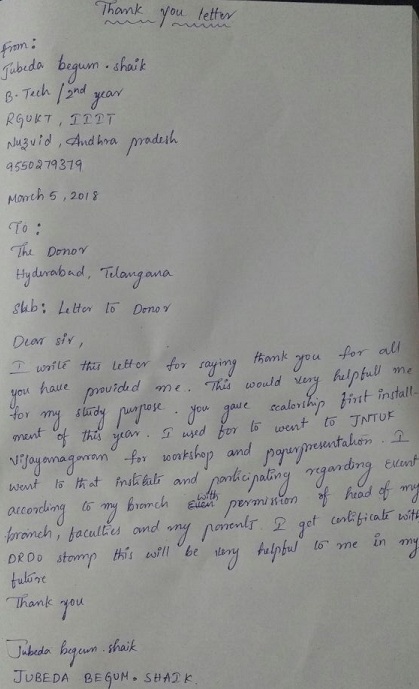 Thank you letter
From:
Jubeda begum. shaik
B-Tech / 2nd year
RGUKT, IIIT
Nuzvid, Andhra pradesh
9550279379
March 5, 2018
To:
The Donor
Hyderabad, Telangana
Sub: Letter to Donor
Dear sir,
I write this letter for saying thank you for all
you have provided me. This would very helpfull me
for my study purpose. you gave scalorship first install-
ment of this year. I used for to went to JNTUK
Vijayanagaram for workshop and paperpresentation. I
went to that institute and participating regarding Event
according to my branch with permission of head of my
branch, faculties and my parents. I got certificate with
DRDO stamp this will be very helpful to me in my
future
Thank you
Jubeda begum. shaik
JUBEDA BEGUM. SHAIK.